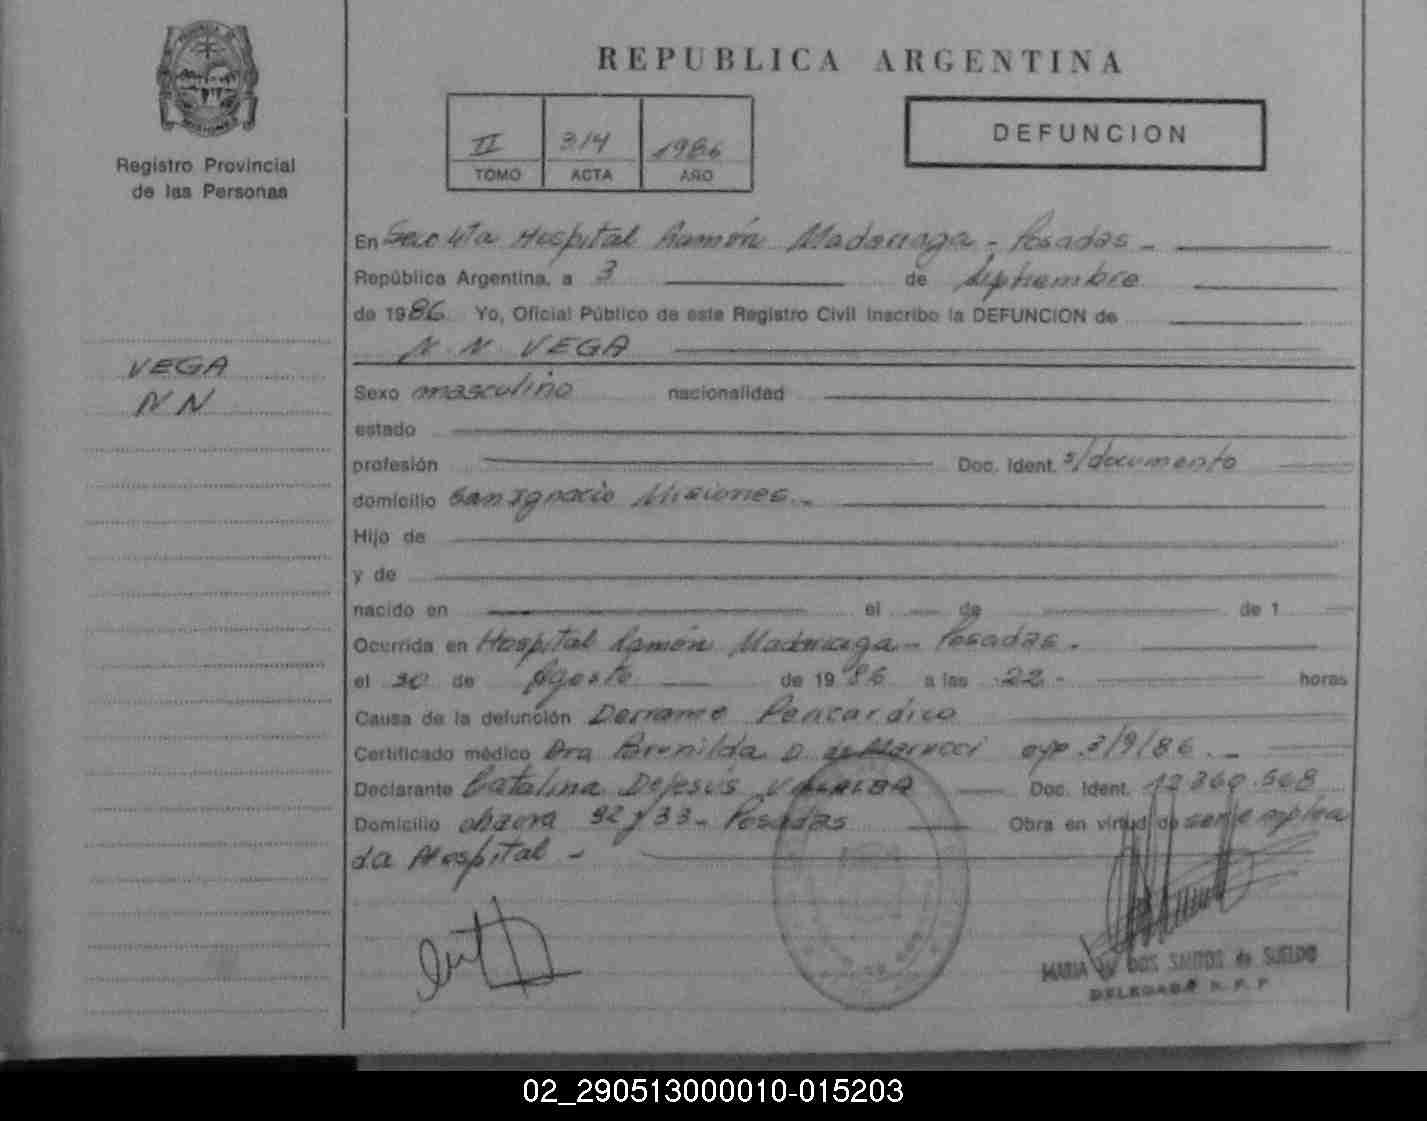 REPUBLICA ARGENTINA
Registro Provincial
de las Personas
II 314 1986
TOMO ACTA AÑO
DEFUNCION
VEGA
N N
En Secc 4ta Hospital Ramón Madariaga - Posadas -
República Argentina, a 3 de Septiembre
de 1986 Yo, Oficial Público de este Registro Civil inscribo la DEFUNCION de
N. N. VEGA
Sexo masculino nacionalidad
estado
profesión Doc. Ident. s/documento
domicilio San Ignacio Misiones -
Hijo de
y de
nacido en el de de 1
Ocurrida en Hospital Ramón Madariaga - Posadas -
el 30 de Agosto de 1986 a las 22 - horas
Causa de la defunción Derrame Pericardico
Certificado médico Dra Brunilda D. de Marucci exp 3/9/86 -
Declarante Catalina Dejesús Doc. Ident. 12 360 568
Domicilio Obrera 92 y 33 - Posadas Obra en virtud de ser emplea
da Hospital -
MARIA DOS SANTOS de SUELDO
DELEGADA R. P. P
02_290513000010-015203